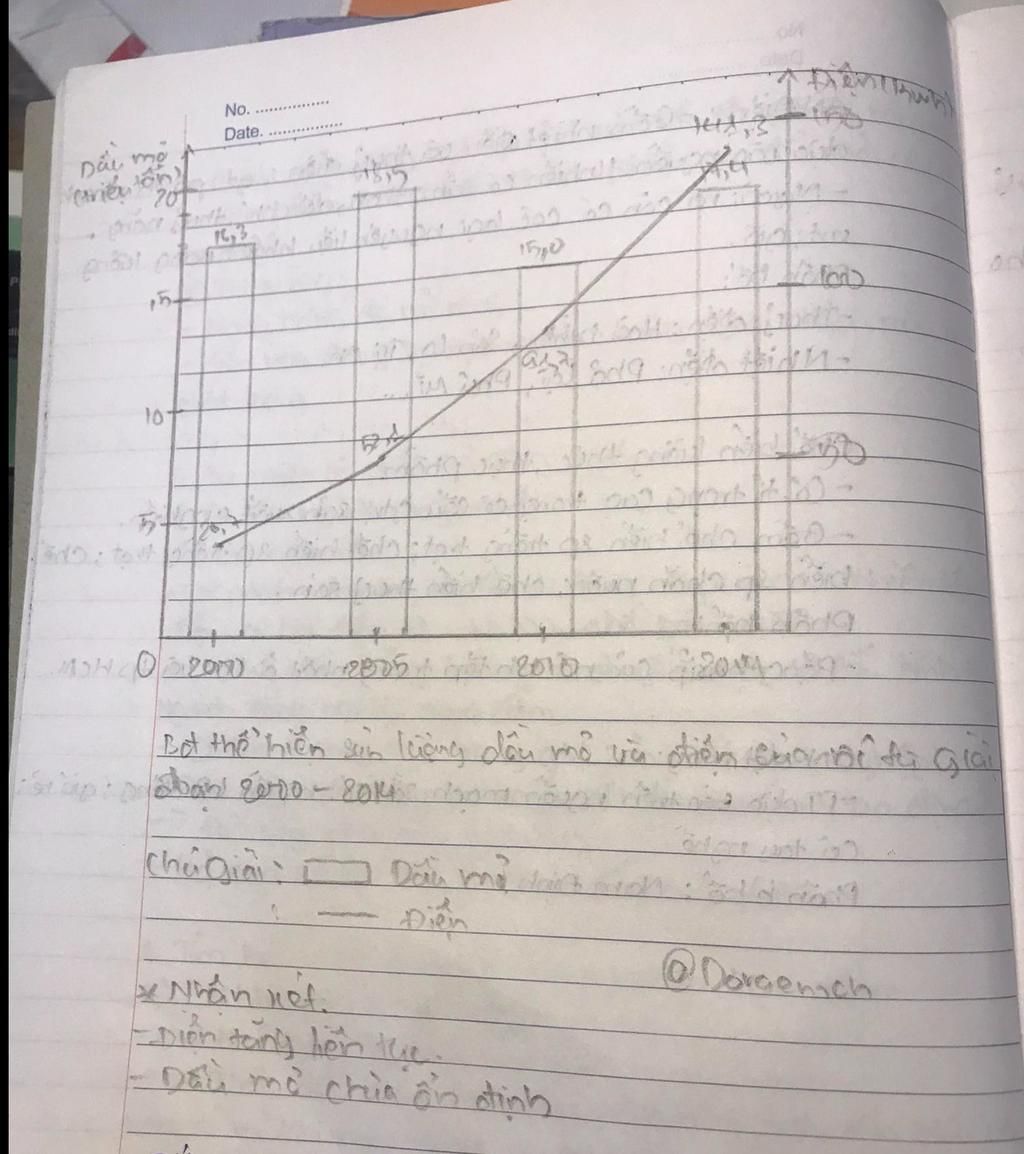 No. ...............
Date. ...............
Điện (
Dầu mỏ
(triệu tấn)
20
15
10
5
0
150
100
50
16,3
18,5
15,0
17,4
26,7
52,1
91,7
141,3
2000 2005 2010 2014
Bđ thể hiện sản lượng dầu mỏ và điện của nc ta Giai
đoạn 2000 - 2014
Chú Giải: Dầu mỏ
: Điện
@Doraemch
* Nhận xét.
- Điện tăng liên tục.
- Dầu mỏ chưa ổn định